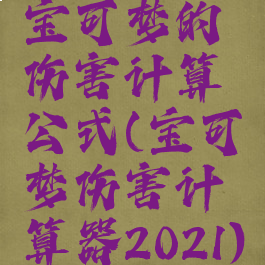 宝可梦的
伤害计算
公式(宝可
梦伤害计
算器2021)